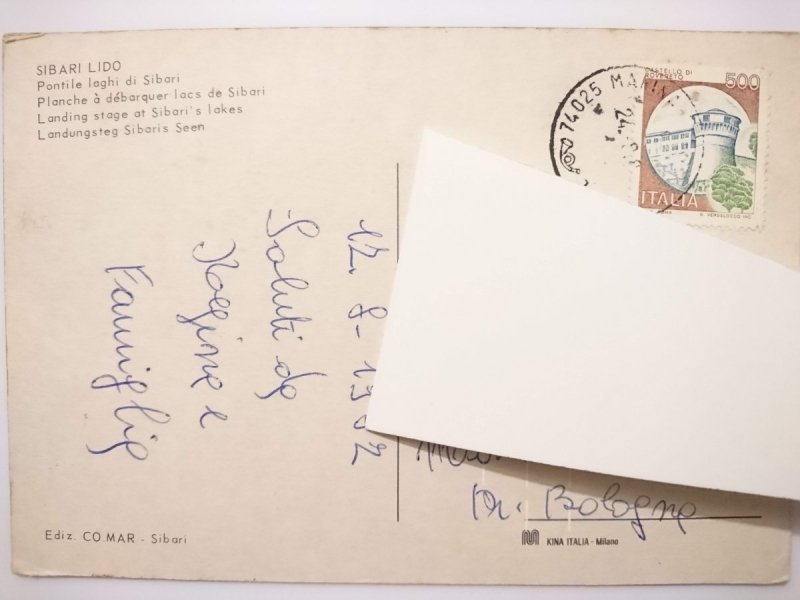 SIBARI LIDO
Pontile laghi di Sibari
Planche à débarquer lacs de Sibari
Landing stage at Sibari's lakes
Landungsteg Sibaris Seen
74025
CASTELLO DI
ROVERETO
500
ITALIA
12. 8-19
Saluti da
e
Famiglia
Bologna
Ediz. CO.MAR - Sibari
KINA ITALIA - Milano